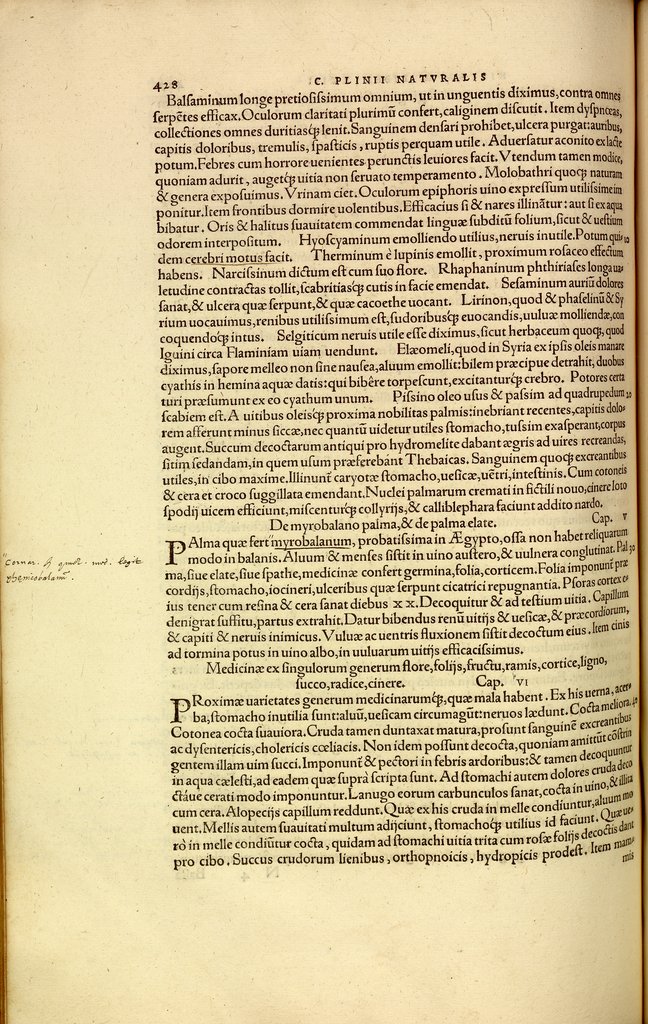 428
C. PLINII NATVRALIS
Balsaminum longe pretiosissimum omnium, ut in unguentis diximus, contra omnes
serpētes efficax. Oculorum claritati plurimū confert, caliginem discutit. Item dyspnœas,
collectiones omnes duritiasq; lenit. Sanguinem densari prohibet, ulcera purgat: auribus,
capitis doloribus, tremulis, spasticis, ruptis perquam utile. Aduersatur aconito ex lacte
potum. Febres cum horrore uenientes perunctis leuiores facit. Vtendum tamen modice,
quoniam adurit, augetq; uitia non seruato temperamento. Molobathri quoq; naturam
& genera exposuimus. Vrinam ciet. Oculorum epiphoris uino expressum utilissime im
ponitur. Item frontibus dormire uolentibus. Efficacius si & nares illinātur: aut si ex aqua
bibatur. Oris & halitus suauitatem commendat linguæ subditū folium, sicut & uestium
odorem interpositum. Hyoscyaminum emolliendo utilius, neruis inutile. Potum qui- 10
dem cerebri motus facit. Therminum è lupinis emollit, proximum rosaceo effectum
habens. Narcissinum dictum est cum suo flore. Rhaphaninum phthiriases longa ua-
letudine contractas tollit, scabritiasq; cutis in facie emendat. Sesaminum auriū dolores
sanat, & ulcera quæ serpunt, & quæ cacoethe uocant. Lirinon, quod & phaselinū & Sy
rium uocauimus, renibus utilissimum est, sudoribusq; euocandis, uuluæ molliendæ, con
coquendoq; intus. Selgiticum neruis utile esse diximus, sicut herbaceum quoq;, quod
Iguini circa Flaminiam uiam uendunt. Elæomeli, quod in Syria ex ipsis oleis manare
diximus, sapore melleo non sine nausea, aluum emollit: bilem præcipue detrahit, duobus
cyathis in hemina aquæ datis: qui bibêre torpescunt, excitanturq; crebro. Potores certa
turi præsumunt ex eo cyathum unum. Pissino oleo usus & passim ad quadrupedum 20
scabiem est. A uitibus oleisq; proxima nobilitas palmis: inebriant recentes, capitis dolo-
rem afferunt minus siccæ, nec quantū uidetur utiles stomacho, tussim exasperant, corpus
augent. Succum decoctarum antiqui pro hydromelite dabant ægris ad uires recreandas,
sitim sedandam, in quem usum præferebant Thebaicas. Sanguinem quoq; excreantibus
utiles, in cibo maxime. Illinunt caryotæ stomacho, uesicæ, uētri, intestinis. Cum cotoneis
& cera et croco suggillata emendant. Nuclei palmarum cremati in fictili nouo, cinere loto
spodij uicem efficiunt, miscenturq; collyrijs, & calliblephara faciunt addito nardo.
De myrobalano palma, & de palma elate. Cap. V
PAlma quæ fert myrobalanum, probatissima in Ægypto, ossa non habet reliquarum
modo in balanis. Aluum & menses sistit in uino austero, & uulnera conglutinat. Pal 30
ma, siue elate, siue spathe, medicinæ confert germina, folia, corticem. Folia imponunt præ
cordijs, stomacho, iocineri, ulceribus quæ serpunt cicatrici repugnantia. Psoras cortex e-
ius tener cum resina & cera sanat diebus xx. Decoquitur & ad testium uitia. Capillum
denigrat suffitu, partus extrahit. Datur bibendus renū uitijs & uesicæ, & præcordiorum,
& capiti & neruis inimicus. Vuluæ ac uentris fluxionem sistit decoctum eius. Item cinis
ad tormina potus in uino albo, in uuluarum uitijs efficacissimus.
Medicinæ ex singulorum generum flore, folijs, fructu, ramis, cortice, ligno,
succo, radice, cinere. Cap. VI
PRoximæ uarietates generum medicinarumq;, quæ mala habent. Ex his uerna, acer-
ba, stomacho inutilia sunt: aluū, uesicam circumagūt: neruos lædunt. Cocta meliora. 40
Cotonea cocta suauiora. Cruda tamen duntaxat matura, prosunt sanguinē excreantibus
ac dysentericis, cholericis cœliacis. Non idem possunt decocta, quoniam amittūt cōstrin
gentem illam uim succi. Imponunt & pectori in febris ardoribus: & tamen decoquuntur
in aqua cælesti, ad eadem quæ suprà scripta sunt. Ad stomachi autem dolores cruda deco
ctáue cerati modo imponuntur. Lanugo eorum carbunculos sanat, cocta in uino, & illita
cum cera. Alopecijs capillum reddunt. Quæ ex his cruda in melle condiuntur, aluum mo
uent. Mellis autem suauitati multum adijciunt, stomachoq; utilius id faciunt. Quæ ue-
rò in melle condiūtur cocta, quidam ad stomachi uitia trita cum rosæ folijs decoctis dant
pro cibo. Succus crudorum lienibus, orthopnoicis, hydropicis prodest. Item mam-
mis
Cornar. legit